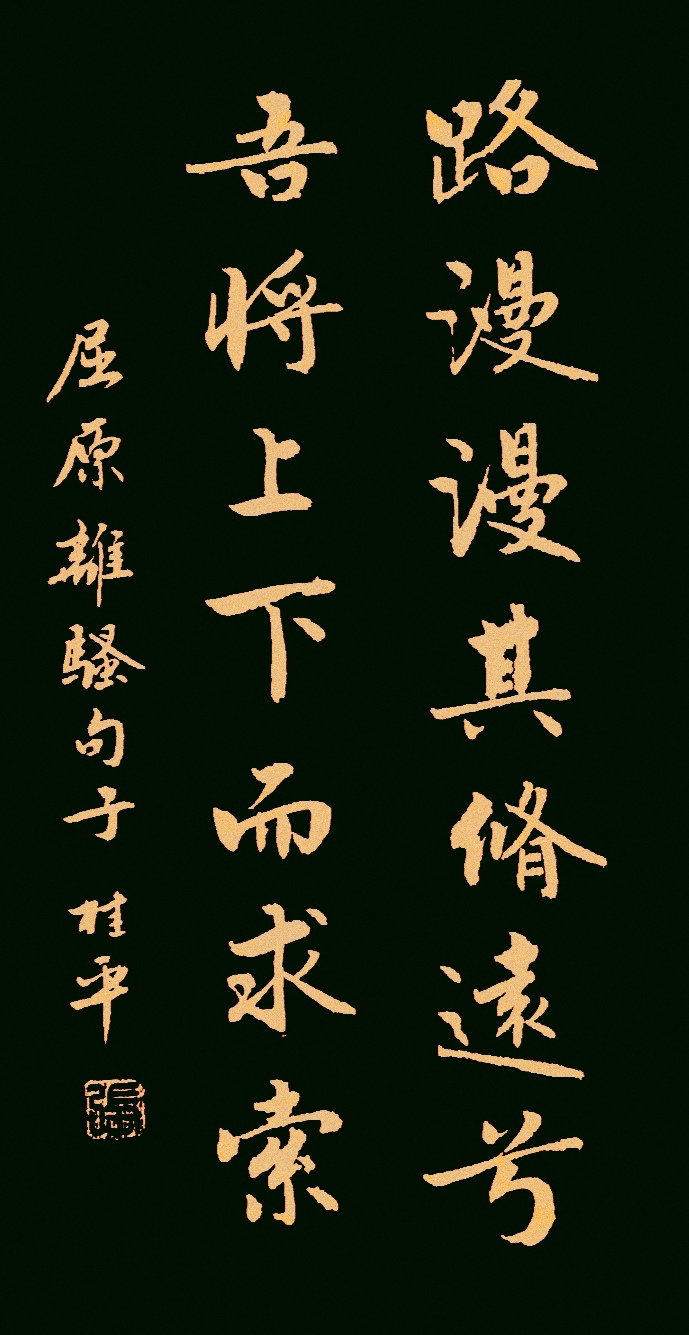 路漫漫其脩遠兮
吾将上下而求索
屈原離騷句子 桂平